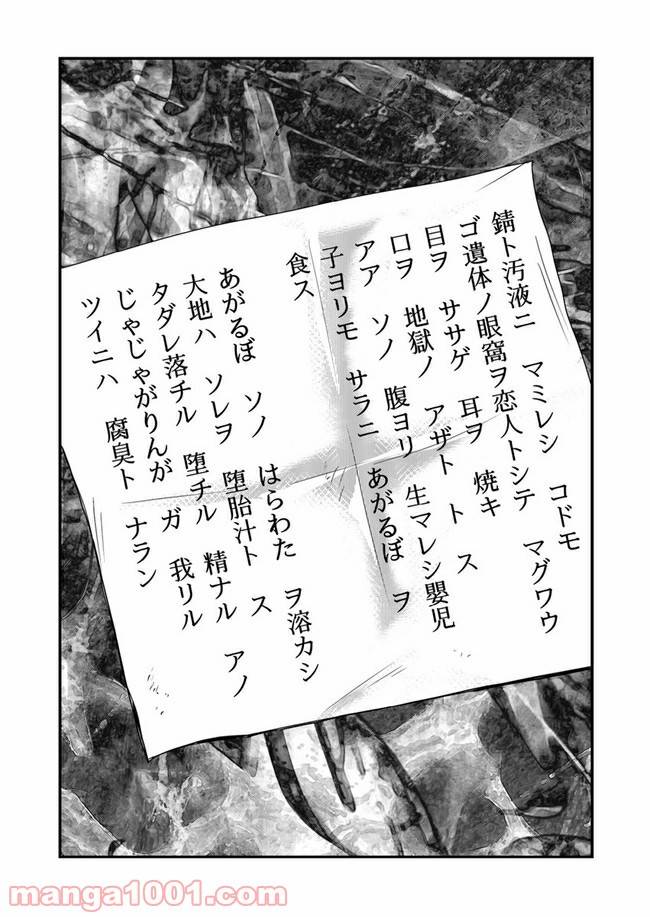 錆ト汚液ニ マミレシ コドモ
ゴ遺体ノ眼窩ヲ恋人トシテ マグワウ
目ヲ ササゲ 耳ヲ 焼キ
口ヲ 地獄ノ アザト ト ス
アア ソノ 腹ヨリ 生マレシ嬰児
子ヨリモ サラニ あがるぼ ヲ
食ス
あがるぼ ソノ はらわた ヲ溶カシ
大地ハ ソレヲ 堕胎汁ト ス
タダレ落チル 堕チル 精ナル アノ
じゃじゃがりんが ガ 我リル
ツイニハ 腐臭ト ナラン
manga1001.com